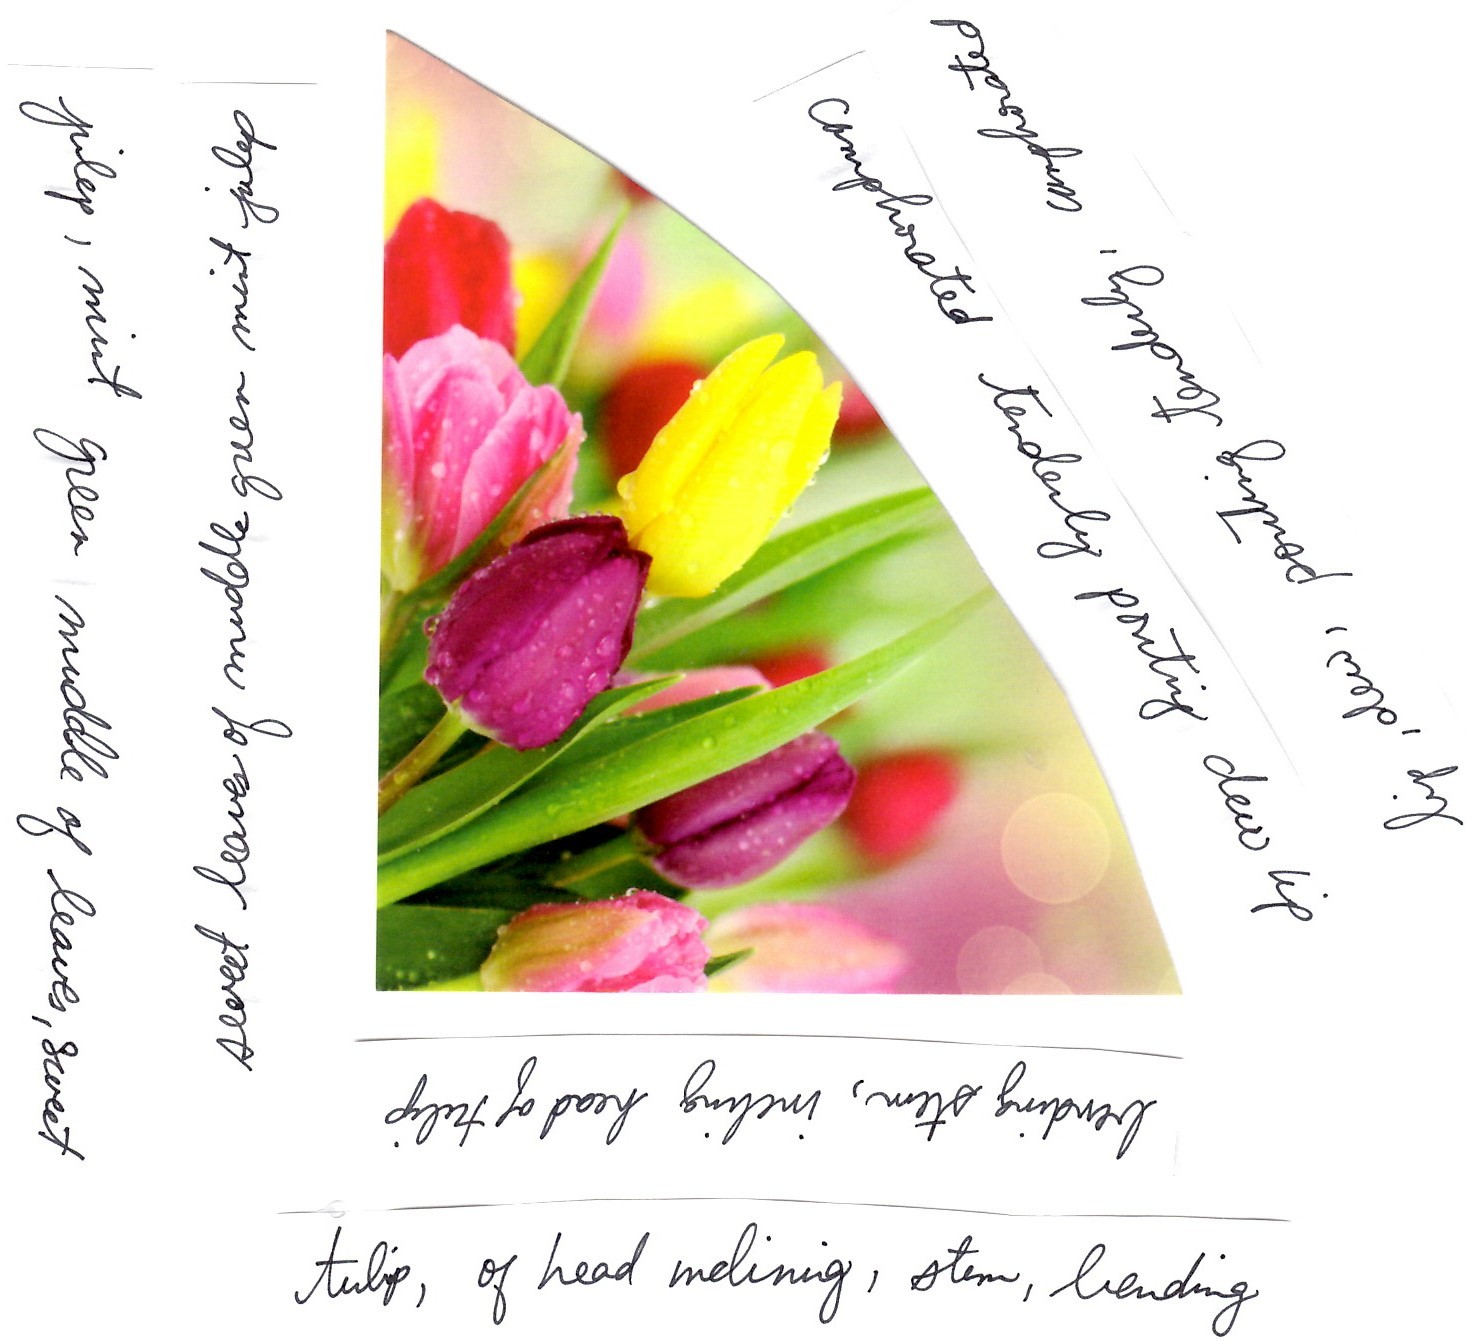 julep, mint green muddle of leaves, sweet
sweet leaves of muddle green mint julep
camphorated tenderly pouting dew lip
lip, dew, pouting tenderly, camphorated
bending stem, inclining head of tulip
tulip, of head inclining, stem, bending